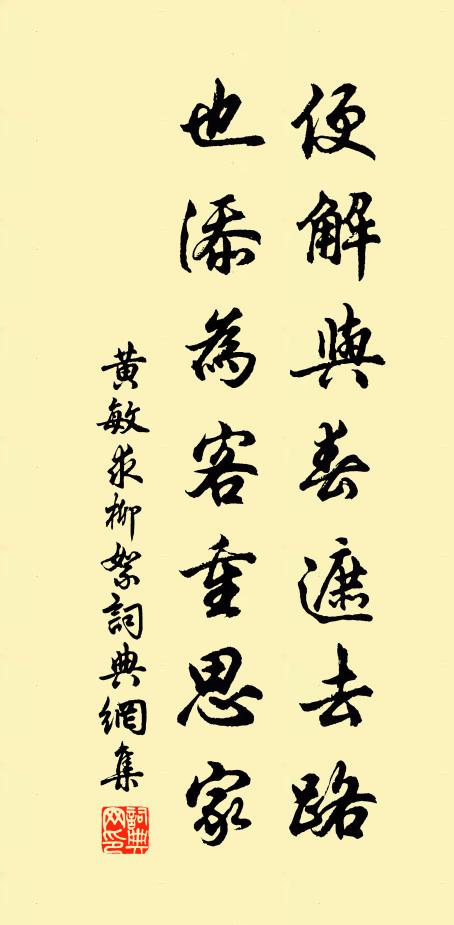 便解與春遮去路
也添為客重思家
黃敏求柳絮詞典網集
詞典網印